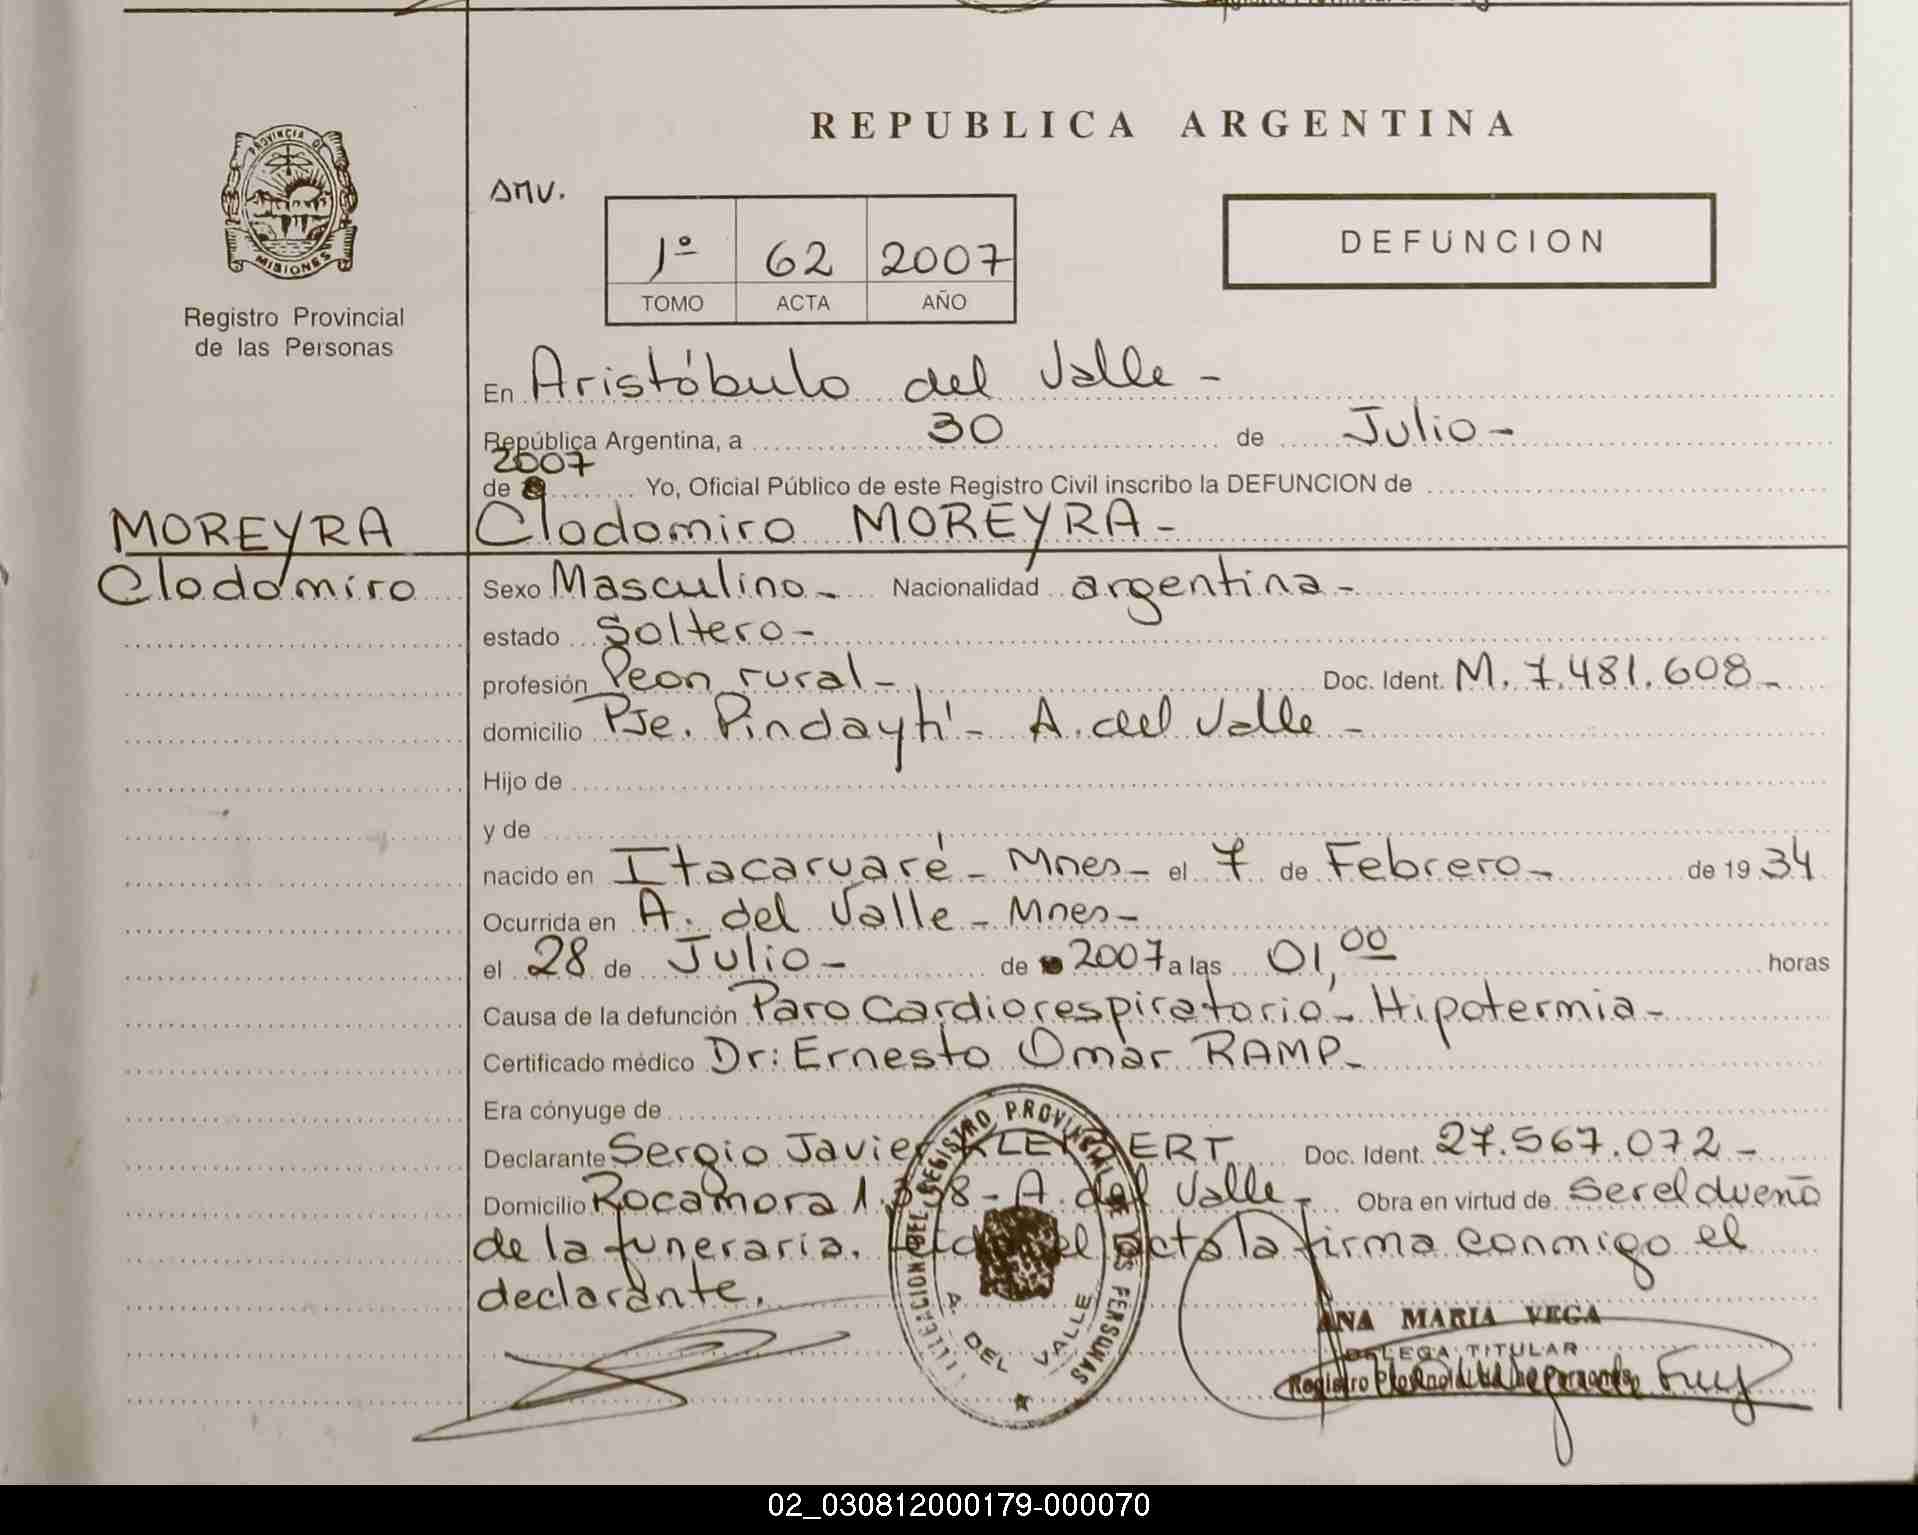 REPUBLICA ARGENTINA
PROVINCIA DE
MISIONES
Registro Provincial
de las Personas
AMV.
1º 62 2007
TOMO ACTA AÑO
DEFUNCION
En Aristóbulo del Valle -
República Argentina, a 30 de Julio -
2007
de Yo, Oficial Público de este Registro Civil inscribo la DEFUNCION de
MOREYRA Clodomiro MOREYRA -
Clodomiro Sexo Masculino - Nacionalidad argentina -
estado Soltero -
profesión Peon rural - Doc. Ident. M. 7.481.608 -
domicilio Pje. Pindaytí - A. del Valle -
Hijo de
y de
nacido en Itacaruaré - Mnes - el 7 de Febrero - de 19 34
Ocurrida en A. del Valle - Mnes -
el 28 de Julio - de 2007 a las 01,00 horas
Causa de la defunción Paro Cardiorespiratorio - Hipotermia -
Certificado médico Dr: Ernesto Omar RAMP -
Era cónyuge de
Declarante Sergio Javier Doc. Ident. 27.567.072 -
Domicilio Rocamora - A. del Valle - Obra en virtud de ser el dueño
de la funeraria. el acta la firma conmigo el
declarante.
DELEGACION DEL REGISTRO PROVINCIAL DE LAS PERSONAS
A. DEL VALLE
ANA MARIA VEGA
DELEGA TITULAR
Registro Provincial de las Personas
02_030812000179-000070